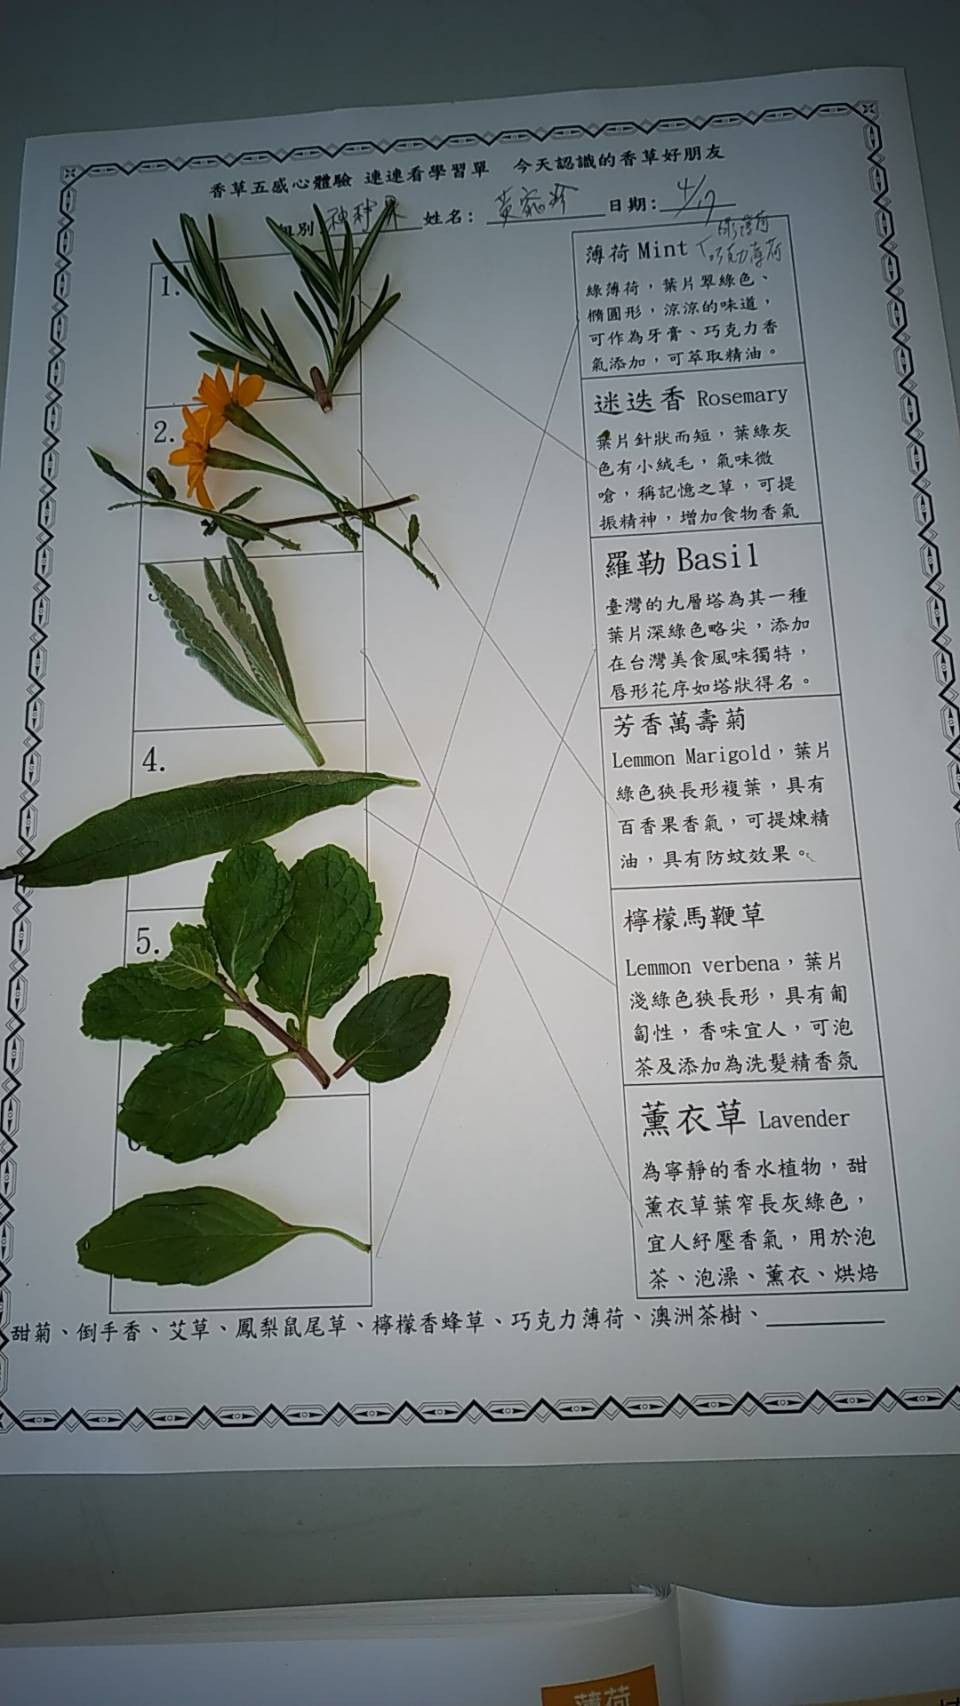 香草五感心體驗 連連看學習單 今天認識的香草好朋友
組別 姓名： 日期：4/17
1.
2.
3.
4.
5.
薄荷 Mint
綠薄荷
巧克力薄荷
綠薄荷，葉片翠綠色、
橢圓形，涼涼的味道，
可作為牙膏、巧克力香
氣添加，可萃取精油。
迷迭香 Rosemary
葉片針狀而短，葉綠灰
色有小絨毛，氣味微
嗆，稱記憶之草，可提
振精神，增加食物香氣
羅勒 Basil
臺灣的九層塔為其一種
葉片深綠色略尖，添加
在台灣美食風味獨特，
唇形花序如塔狀得名。
芳香萬壽菊
Lemmon Marigold，葉片
綠色狹長形複葉，具有
百香果香氣，可提煉精
油，具有防蚊效果。
檸檬馬鞭草
Lemmon verbena，葉片
淺綠色狹長形，具有匍
匐性，香味宜人，可泡
茶及添加為洗髮精香氛
薰衣草 Lavender
為寧靜的香水植物，甜
薰衣草葉窄長灰綠色，
宜人紓壓香氣，用於泡
茶、泡澡、薰衣、烘焙
甜菊、倒手香、艾草、鳳梨鼠尾草、檸檬香蜂草、巧克力薄荷、澳洲茶樹、
薄荷